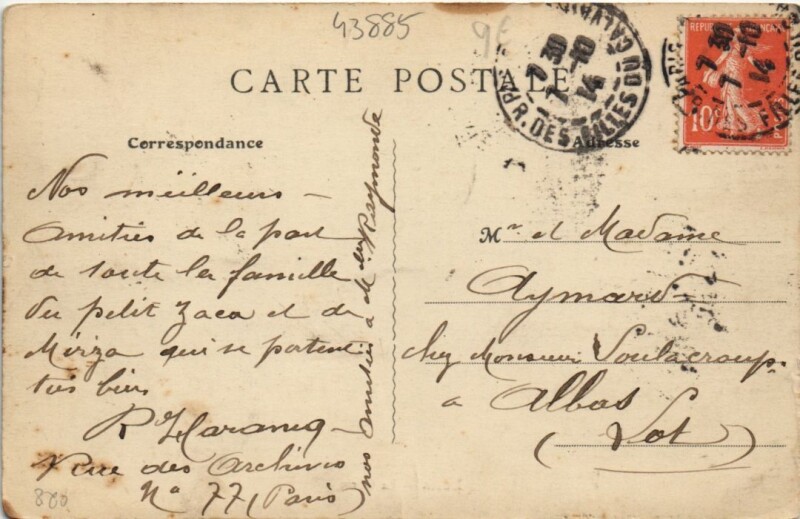 43885
9€
CARTE POSTALE
Correspondance
Adresse
PARIS
R. DES FILLES DU CALVAIRE
7 30
7 - 10
14
REPUBLIQUE FRANÇAISE
10
Nos meilleurs
Amitiés de la part
de toute la famille
du petit Zaca et de
Mirza qui se portent
très bien
R Haranq
Rue des Archives
No 77 (Paris)
880
nos amitiés a Raymonde
Mr et Madame
Aymard
chez Monsieur
a Albas
(Lot)